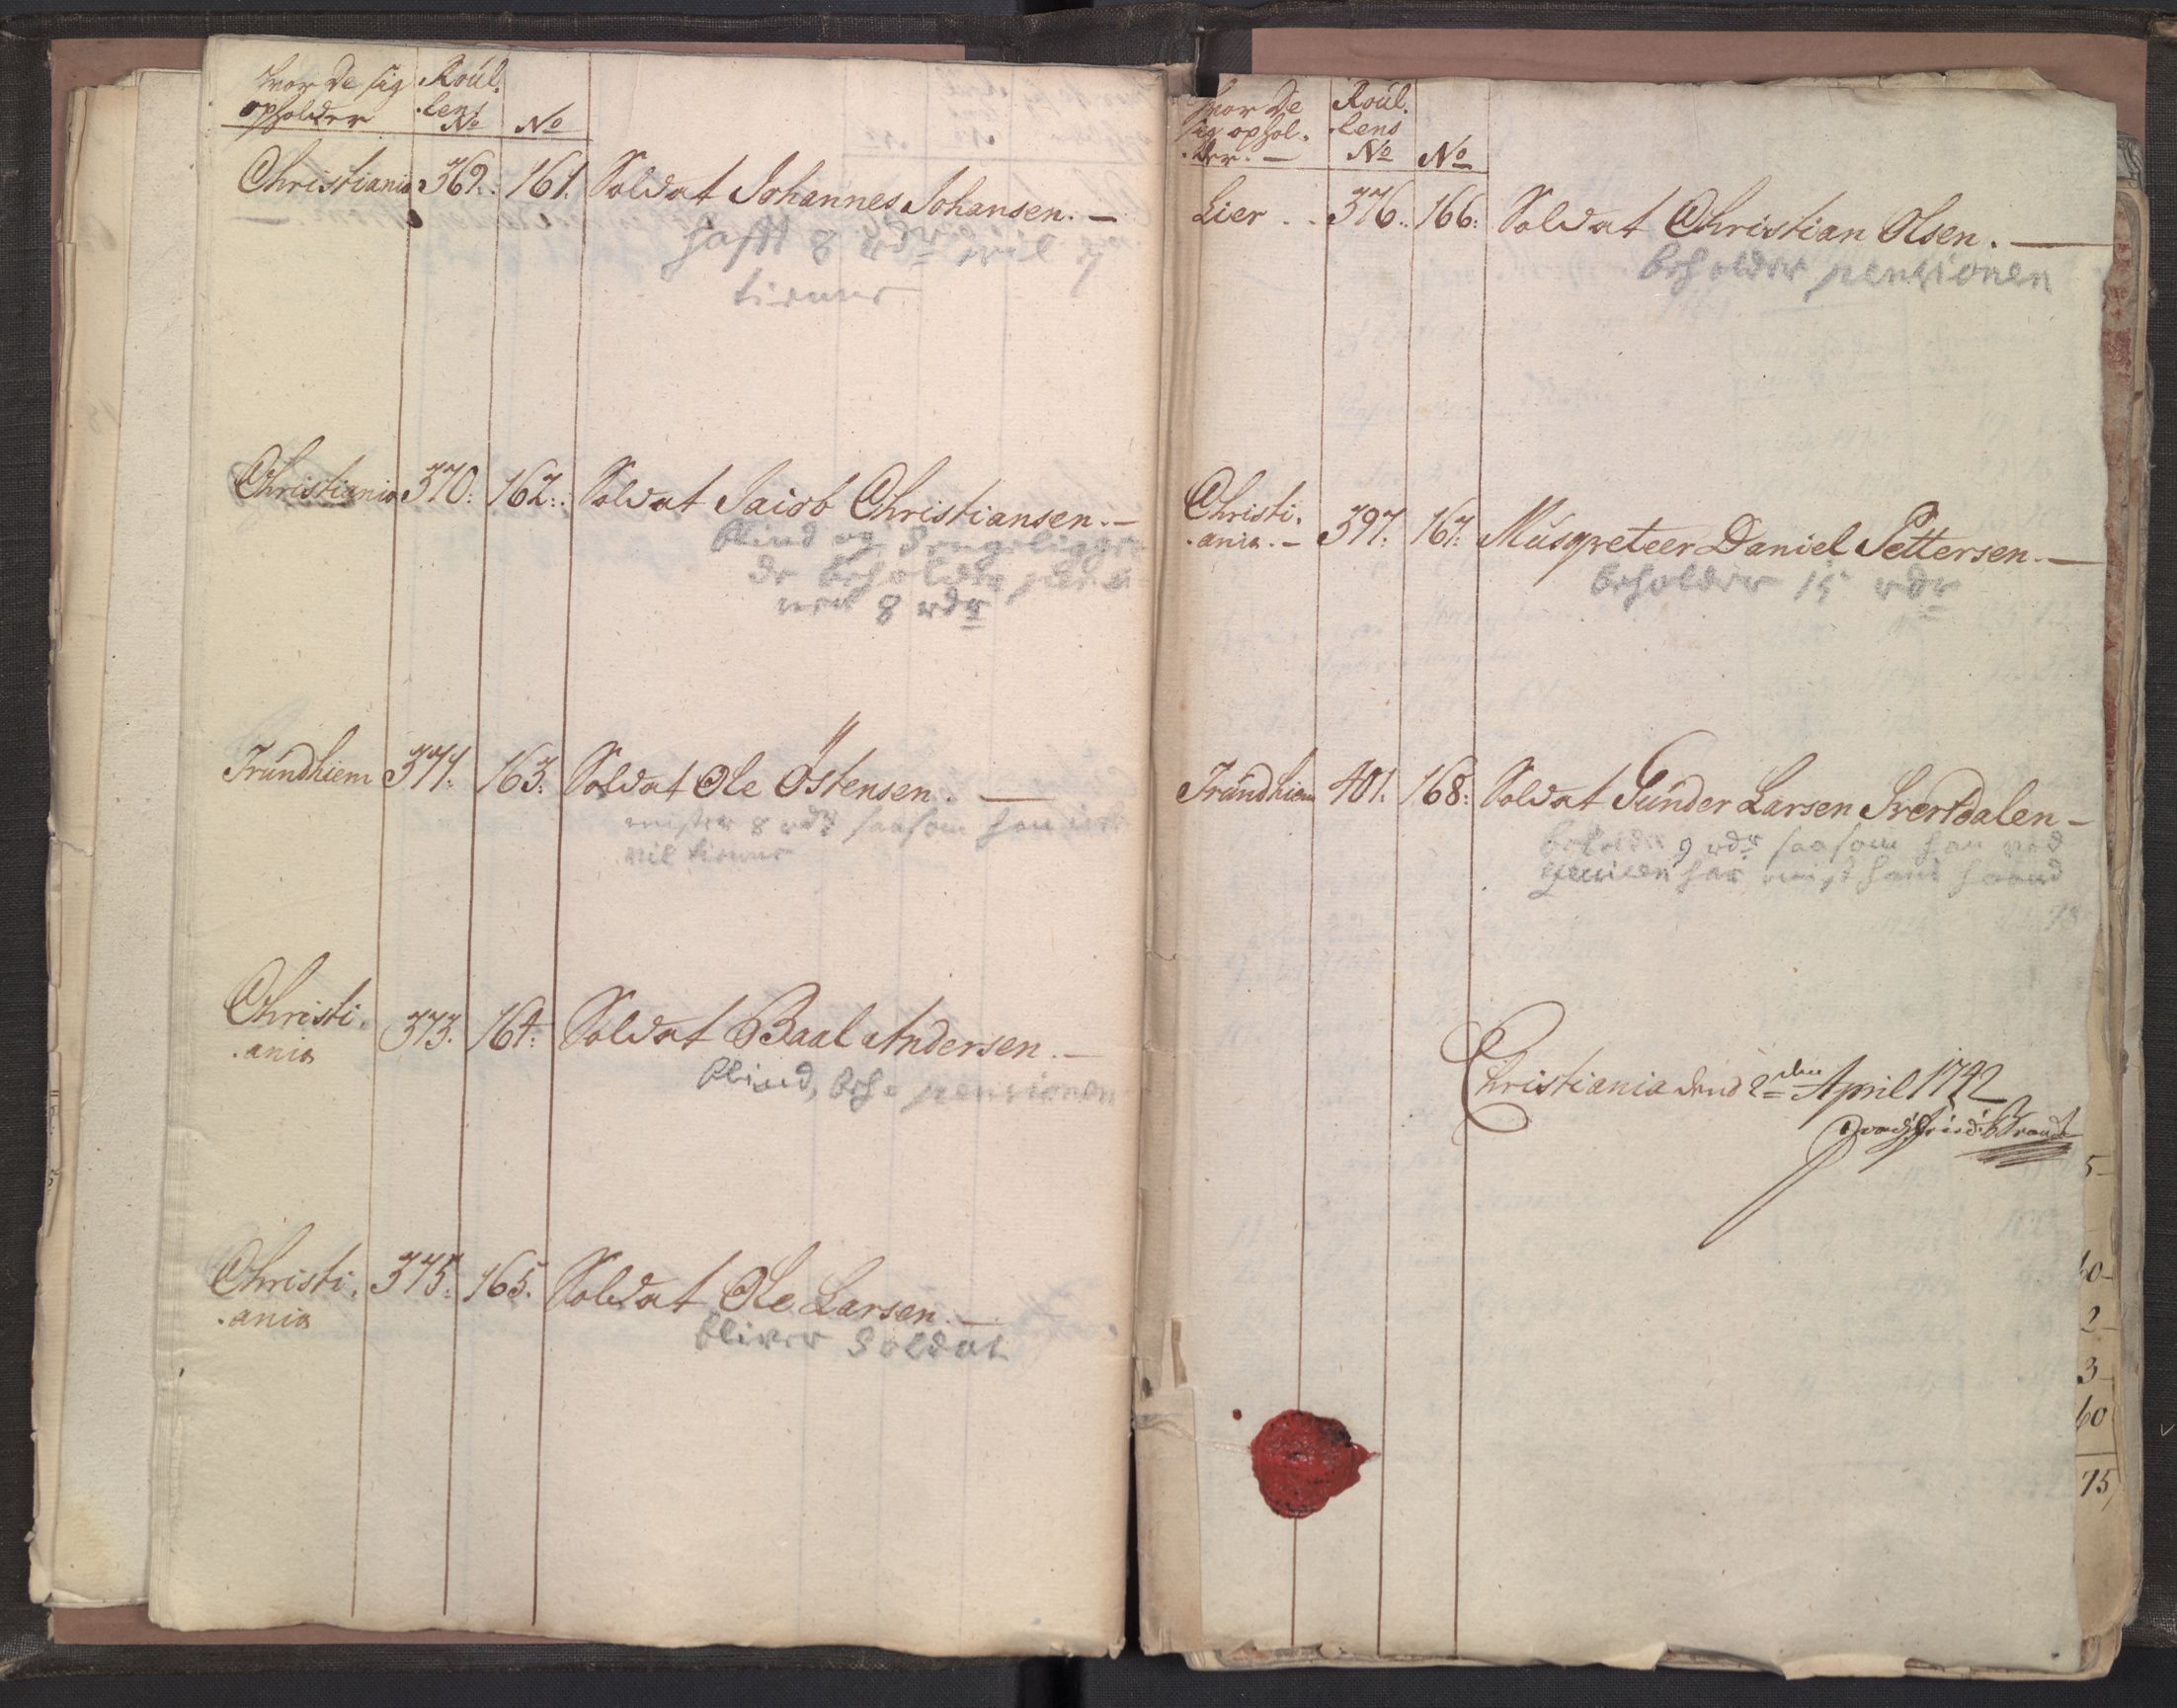 hvor de sig Roul.
opholder .lens
No No
Christiania 369. 161. Soldat Johannes Johansen. —
hafft 8 rdr vil ej
tienne
Christiania 370: 162: Soldat Jacob Christiansen. —
blind og Sengeliggen
de beholder pensi
nen 8 rdr
Trundhiem 371. 163: Soldat Ole Östensen. —
mister 8 rdr saasom han
vil tienne
Christi. 373. 164: Soldat Baal Andersen. —
.ania
blind, beh. pensionen
Christi. 375. 165. Soldat Ole Larsen. —
.ania
bliver Soldat
hvor de Roul.
sig ophol. .lens
.der. — No No
Lier . . 376. 166: Soldat Christian Olsen. —
beholder pensionen
Christi. 397. 167: Musqveteer Daniel Pettersen. —
.ania. —
beholder 15 rdr
Trundhiem 401. 168: Soldat Gunder Larsen Svertdalen —
beholder 9 rdr saasom han ved
har mist hans haand
Christiania dend 2den April 1742
Brandt
5 —
60 —
2 —
3 —
60
75